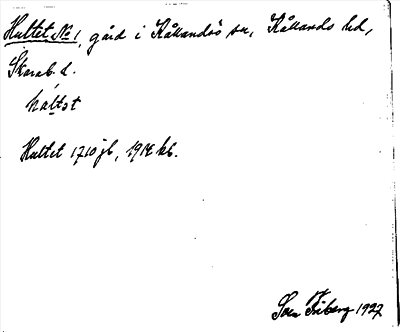 Hultet No 1, gård i Kållandsö sn, Kållands hd,
Skarab. l.
hultst
Hultet 1710 jb, 1914 kb.
Sven Friberg 1927